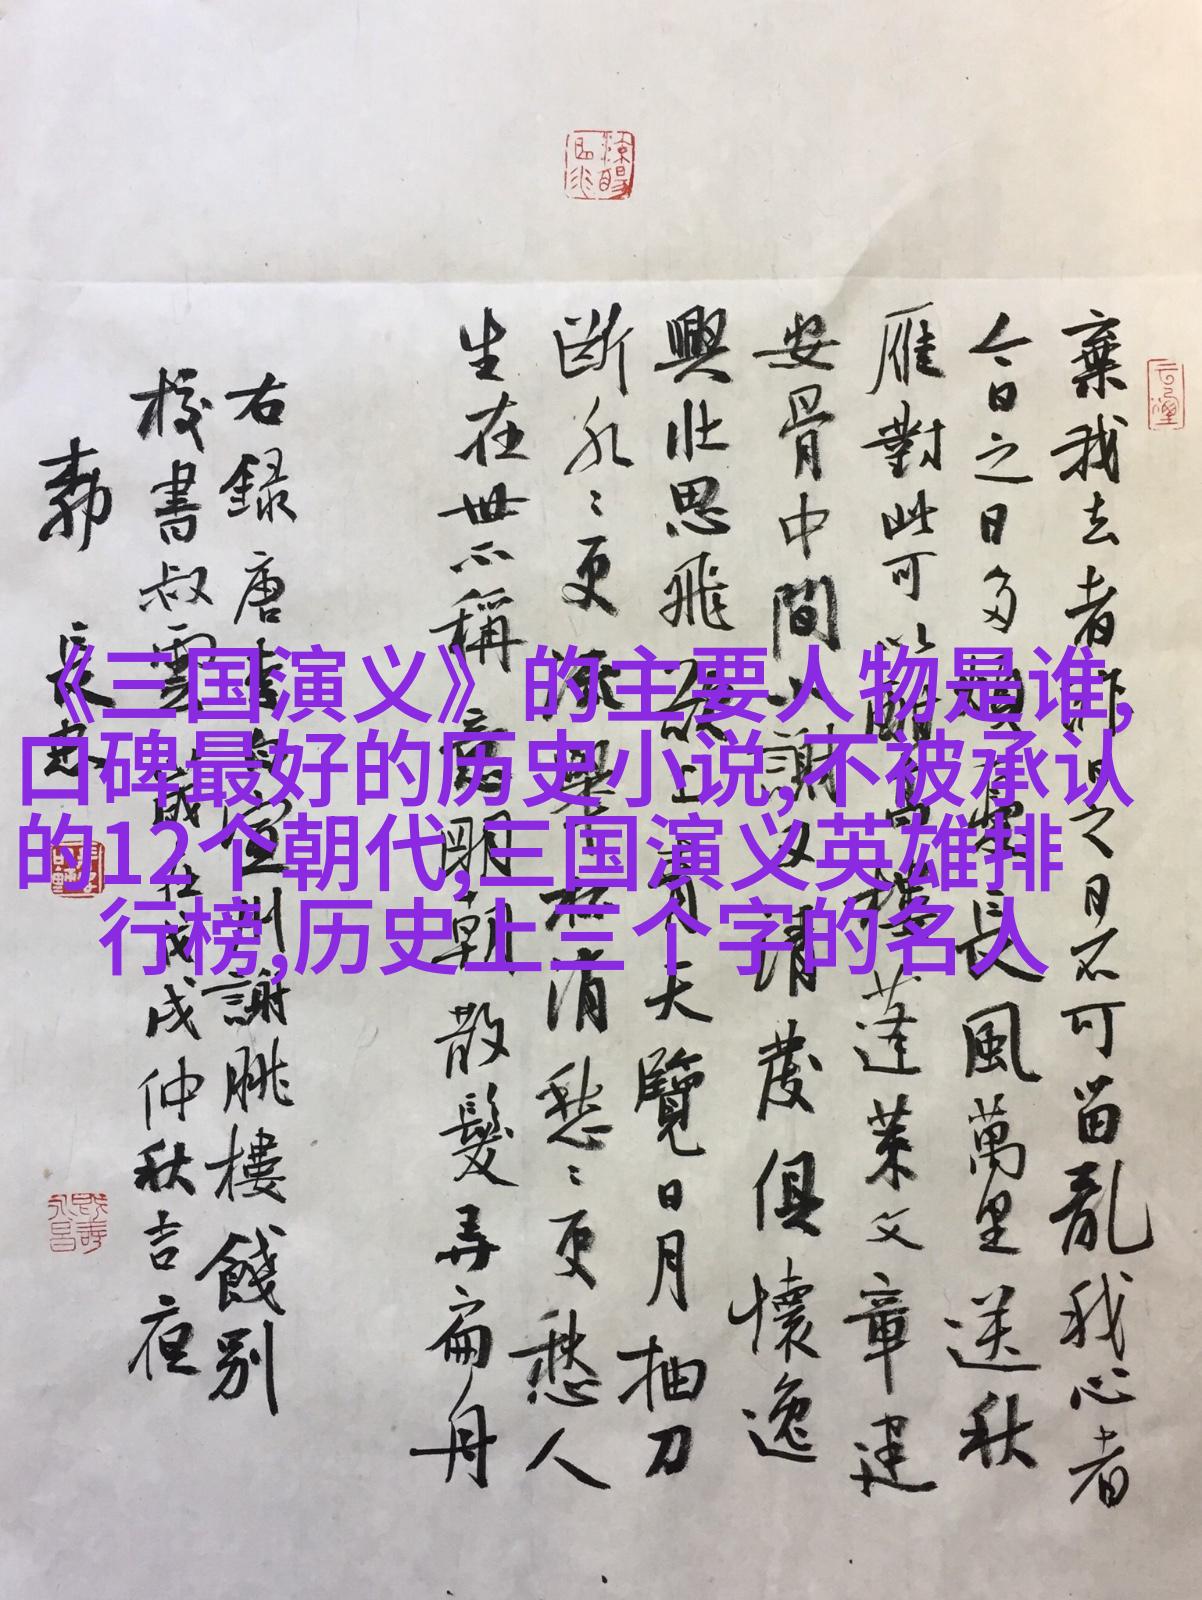 《三国演义》的主要人物是谁,
口碑最好的历史小说,不被承认
的12个朝代,三国演义英雄排
行榜,历史上三个字的名人
棄我去者昨日之日不可留亂我心者
今日之日多煩憂長風萬里送秋
雁對此可以酣高樓蓬萊文章建
安骨中間小謝又清發俱懷逸
興壯思飛欲上青天覽日月抽刀
斷水〻更流舉杯消愁〻更愁人
生在世不稱意明朝散髮弄扁舟
右録唐李白宣州謝朓樓餞別
校書叔雲歲在戊戌仲秋吉夜
長忠